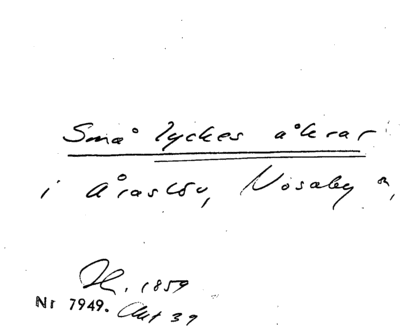 Små lyckes åkrar
i Åraslöv, Nosaby
1859
Nr 7949. Akt 39